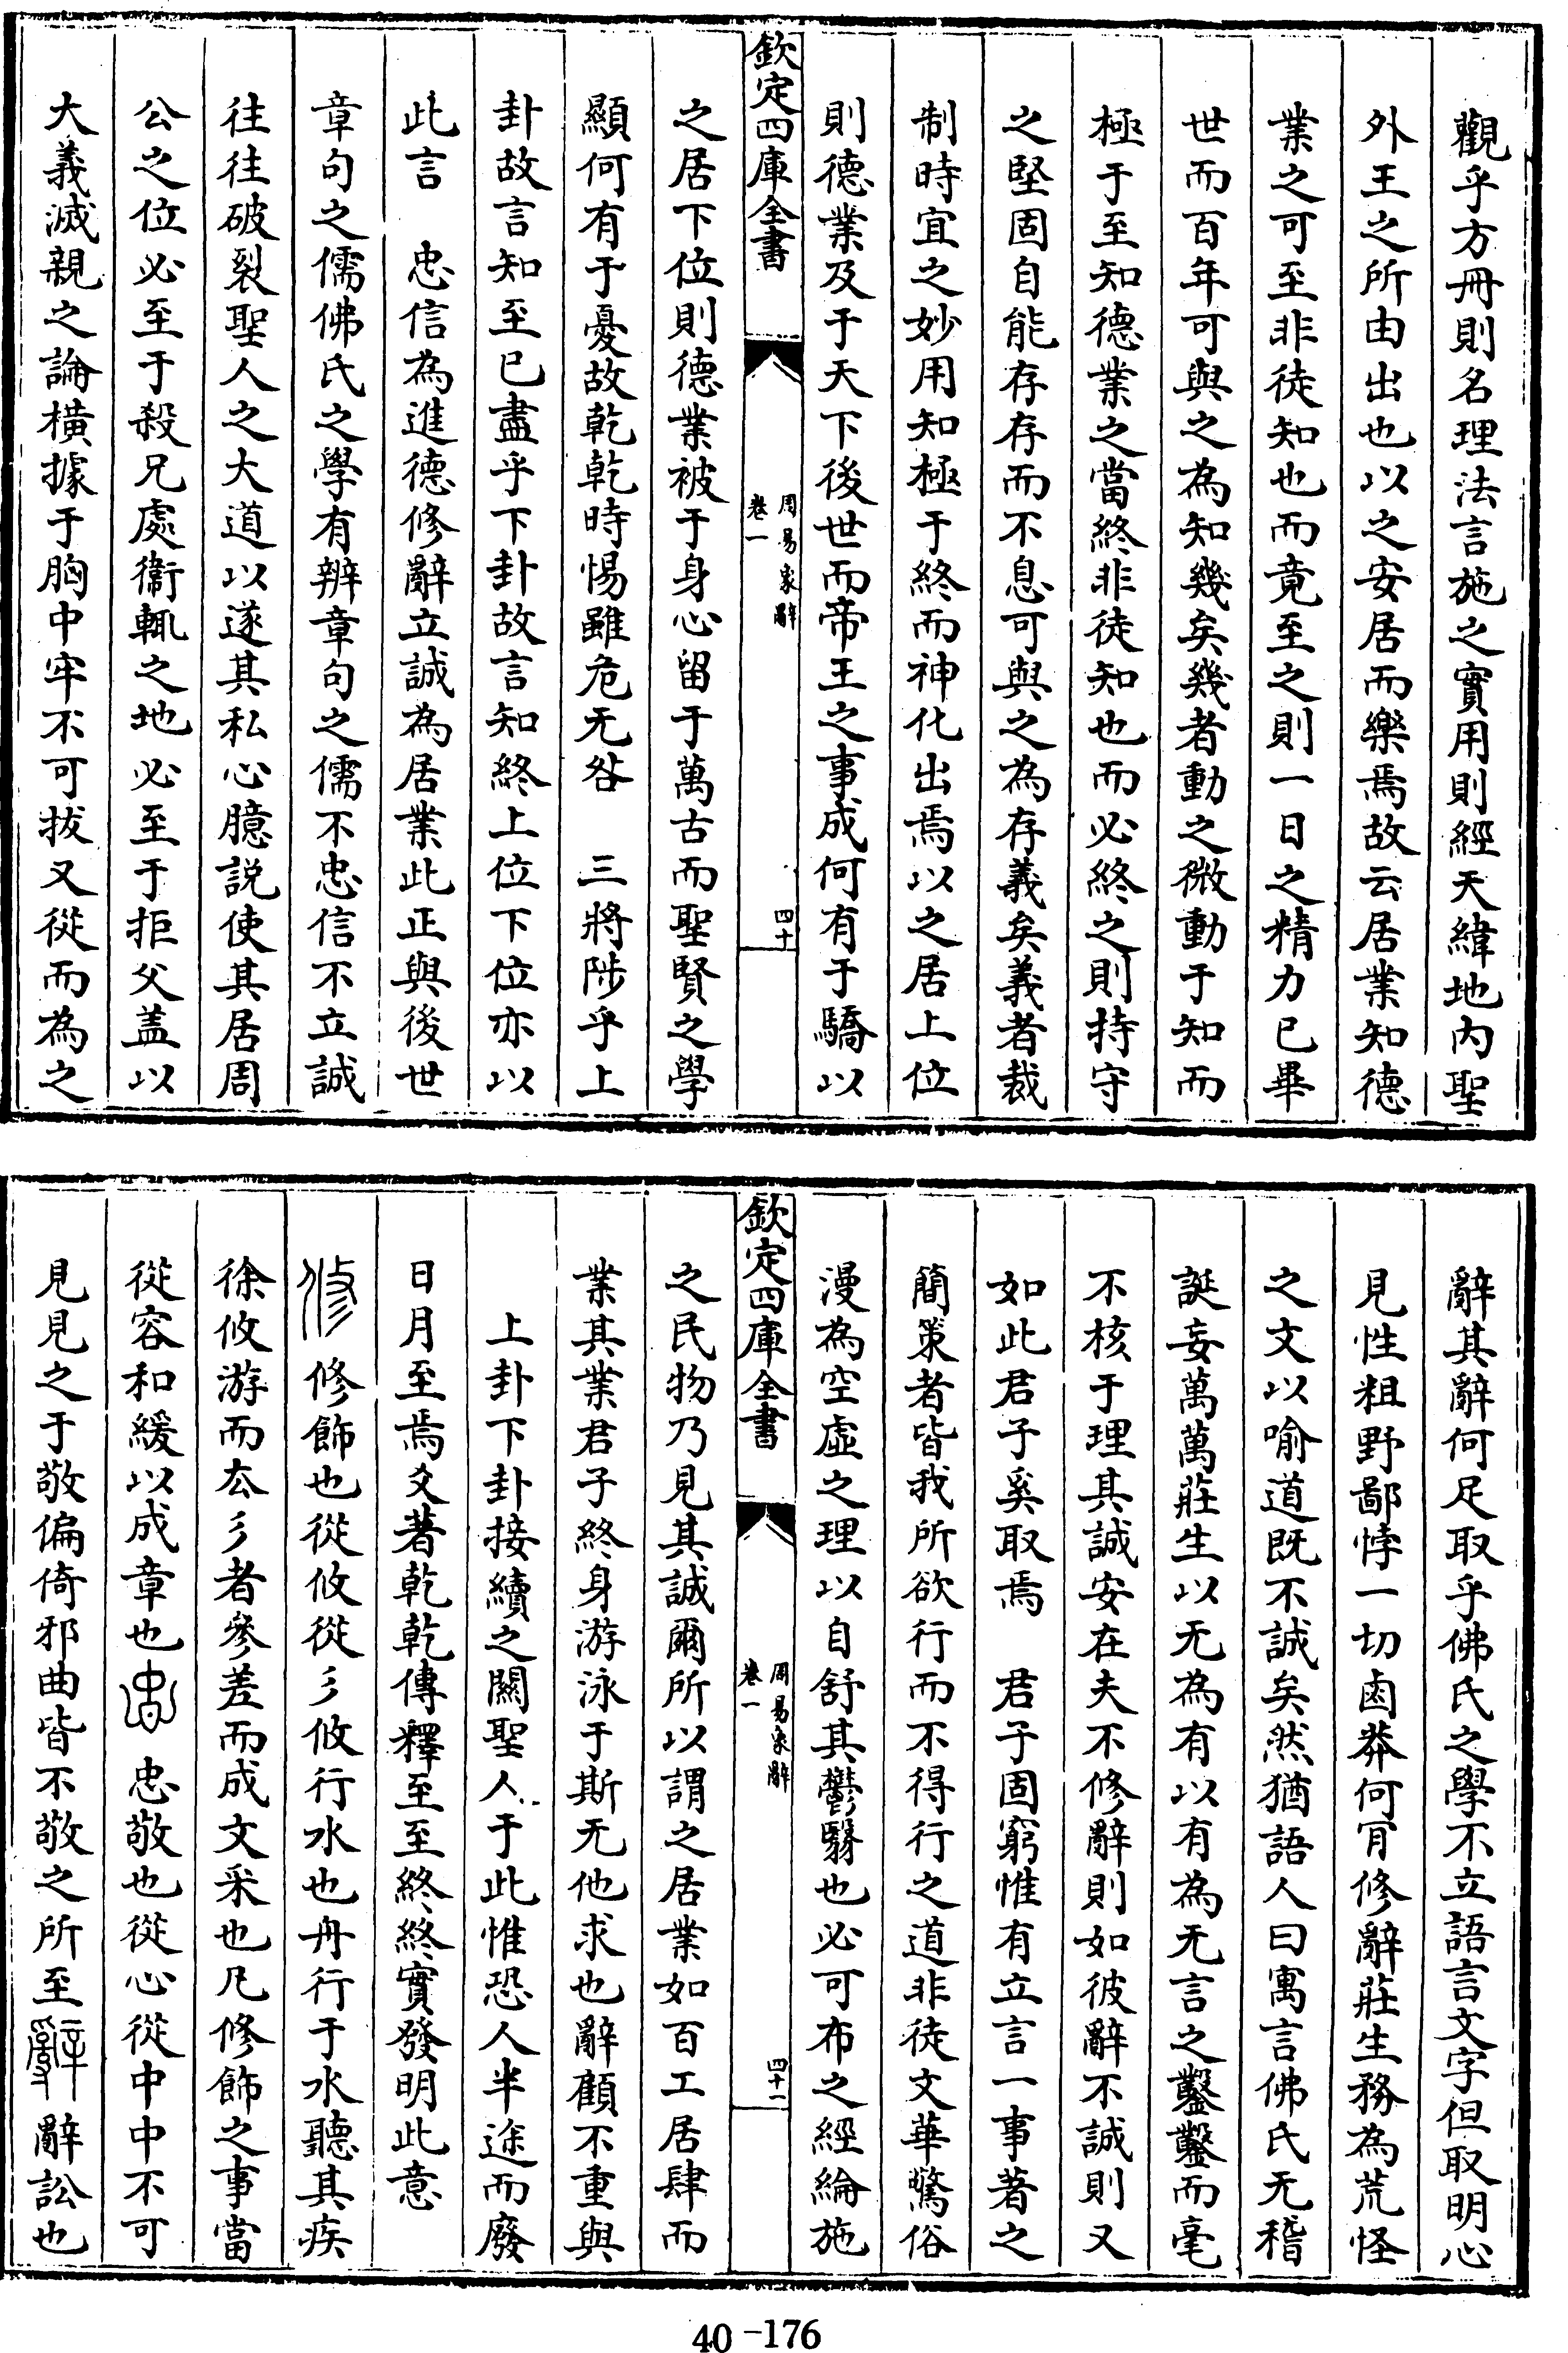 觀乎方冊則名理法言施之實用則經天緯地内聖
外王之所由出也以之安居而樂焉故云居業知德
業之可至非徒知也而竟至之則一日之精力已畢
世而百年可與之為知幾矣幾者動之微動于知而
極于至知德業之當終非徒知也而必終之則持守
之堅固自能存存而不息可與之為存義矣義者裁
制時宜之妙用知極于終而神化出焉以之居上位
則德業及于天下後世而帝王之事成何有于驕以
欽定四庫全書
周易象辭
卷一
四十
之居下位則德業被于身心留于萬古而聖賢之學
顯何有于憂故乾乾時惕雖危无咎　三將陟乎上
卦故言知至已盡乎下卦故言知終上位下位亦以
此言　忠信為進德修辭立誠為居業此正與後世
章句之儒佛氏之學有辨章句之儒不忠信不立誠
往往破裂聖人之大道以遂其私心臆説使其居周
公之位必至于殺兄處衞輒之地必至于拒父盖以
大義滅親之論橫據于胸中牢不可拔又從而為之
辭其辭何足取乎佛氏之學不立語言文字但取明心
見性粗野鄙悖一切鹵莽何肎修辭莊生務為荒怪
之文以喻道既不誠矣然猶語人曰寓言佛氏无稽
誕妄萬萬莊生以无為有以有為无言之鑿鑿而毫
不核于理其誠安在夫不修辭則如彼辭不誠則又
如此君子奚取焉　君子固窮惟有立言一事著之
簡策者皆我所欲行而不得行之道非徒文華驚俗
漫為空虛之理以自舒其鬱翳也必可布之經綸施
欽定四庫全書
周易象辭
卷一
四十一
之民物乃見其誠爾所以謂之居業如百工居肆而
業其業君子終身游泳于斯无他求也辭顧不重與
上卦下卦接續之關聖人于此惟恐人半途而廢
日月至焉爻著乾乾傳釋至至終終實發明此意
修　修飾也從攸從彡攸行水也舟行于水聽其疾
徐攸游而㳒彡者參差而成文采也凡修飾之事當
從容和緩以成章也忠　忠敬也從心從中中不可
見見之于敬偏倚邪曲皆不敬之所至辭　辭訟也
40-176